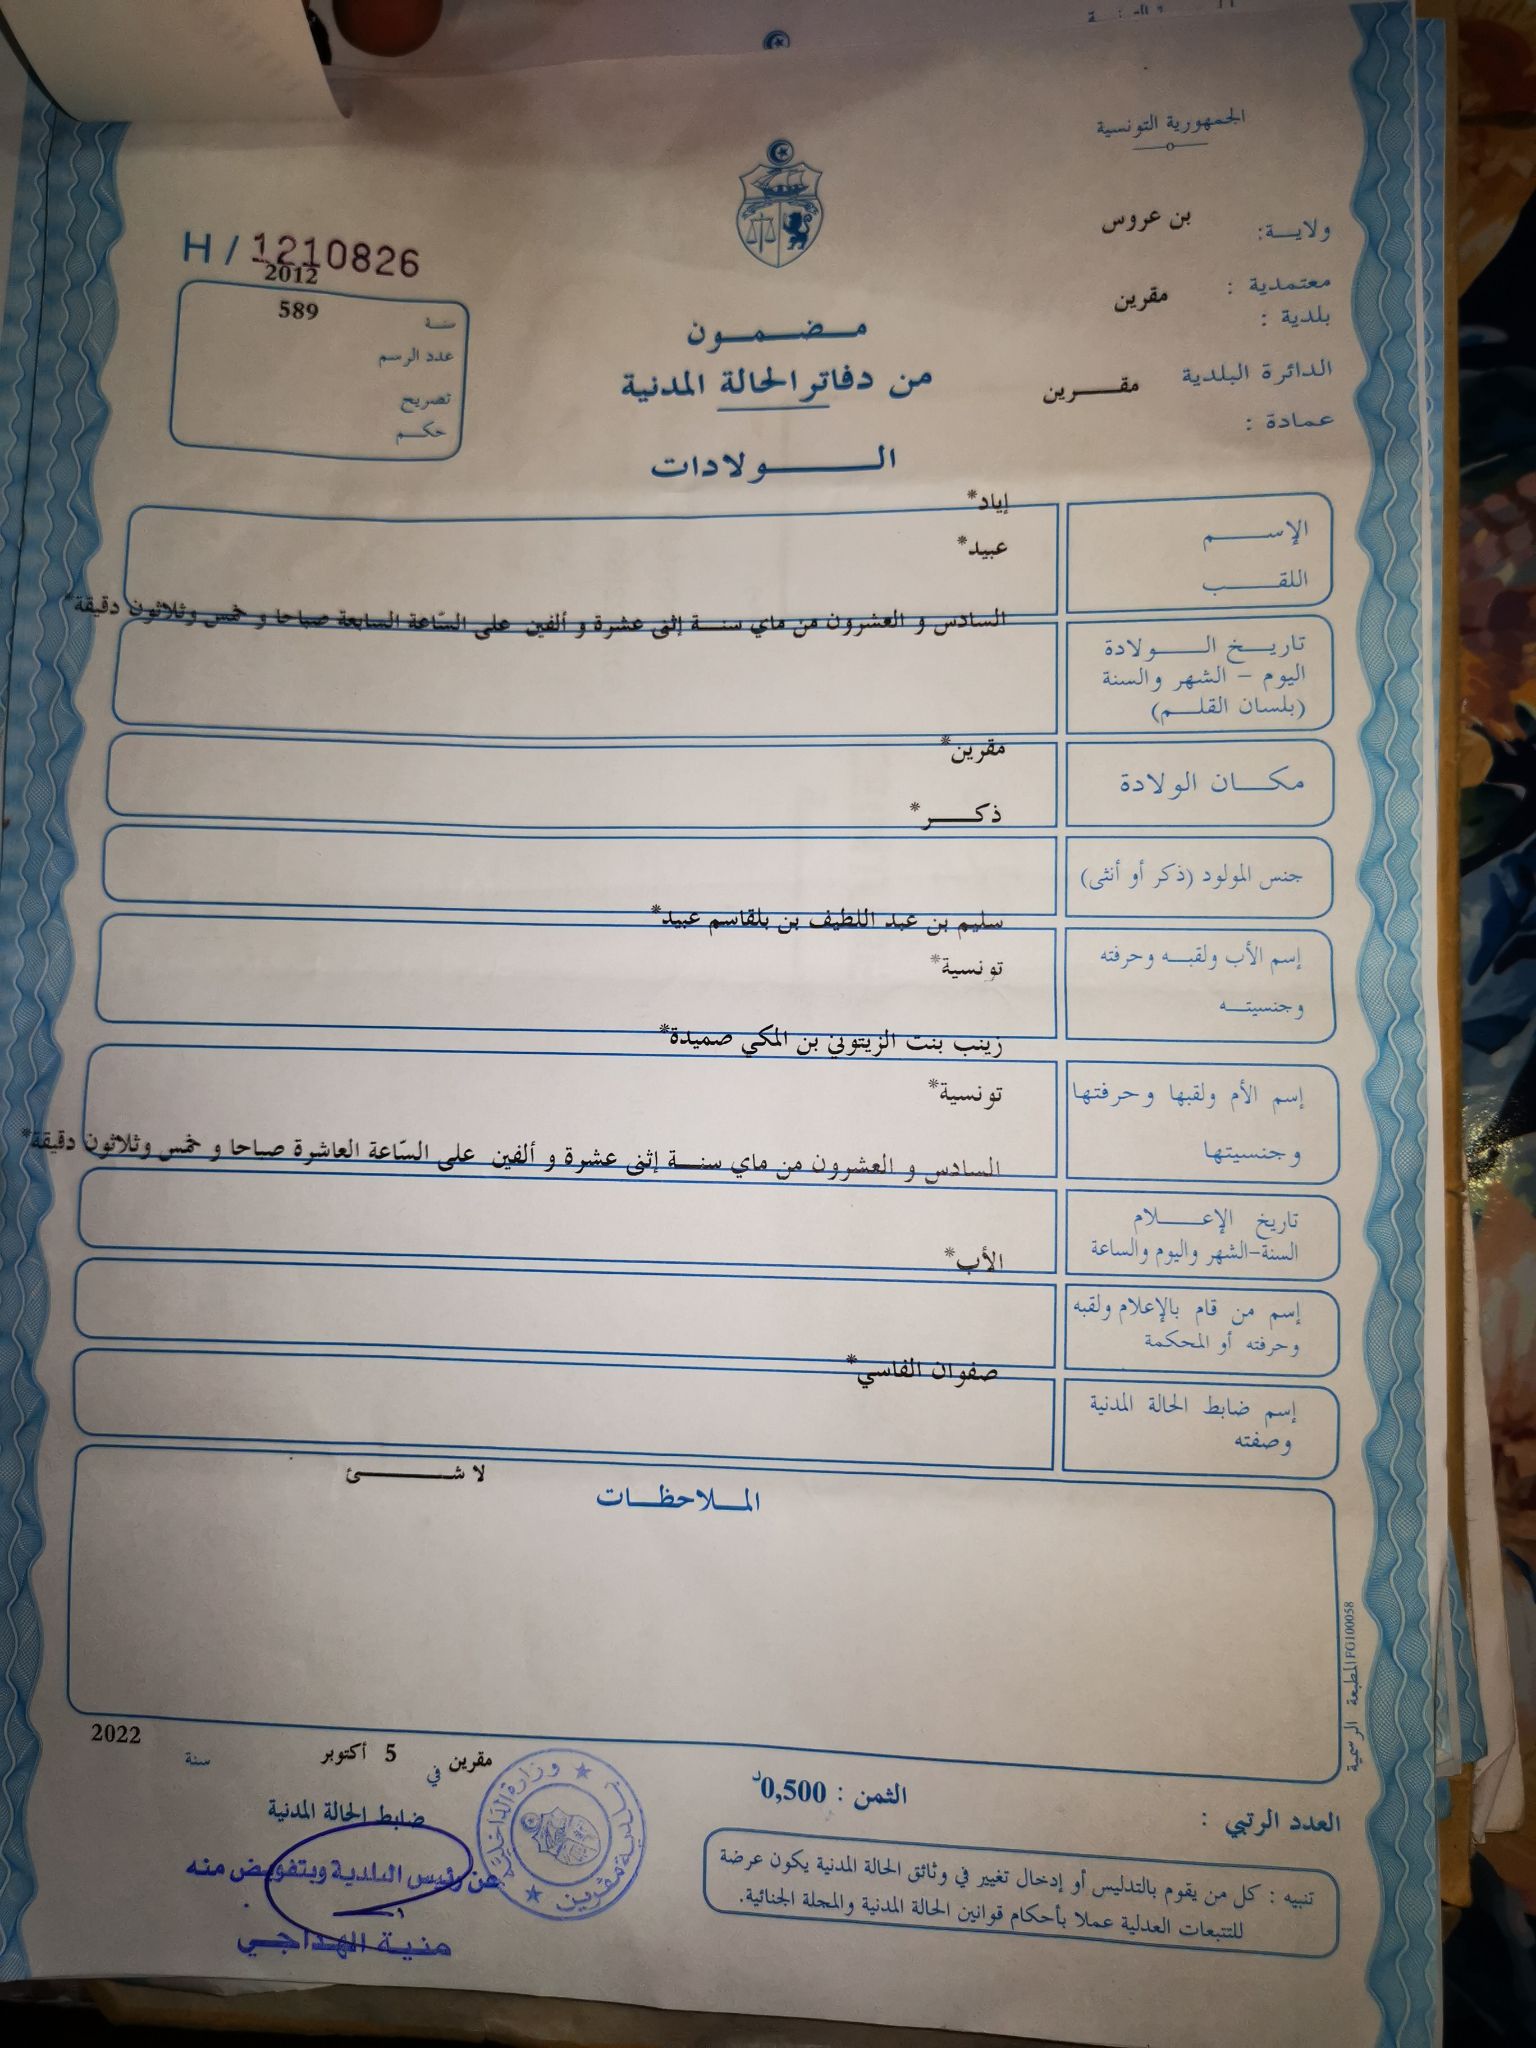 الجمهورية التونسية
ولايـــة: بن عروس
معتمدية :
مقرين
بلدية :
الدائرة البلدية مقـــــرين
عمادة :
H / 1210826
2012
سنة 589
عدد الرسم
تصريح
حكم
مـــضـــمـــون
من دفاتر الحالة المدنية
الـــــــولادات
الإســـــم إياد*
اللقـــــب عبيد*
السادس و العشرون من ماي سنـــة إثنى عشرة و ألفين على السّاعة السابعة صباحا و خمس وثلاثون دقيقة*
تاريـــخ الـــــولادة
اليوم - الشهر والسنة
(بلسان القلـــم)
مقرين*
مكـــان الولادة
ذكـــــر*
جنس المولود (ذكر أو أنثى)
سليم بن عبد اللطيف بن بلقاسم عبيد*
إسم الأب ولقبـــه وحرفته
تونسية*
وجنسيتـــه
زينب بنت الزيتوني بن المكي صميدة*
إسم الأم ولقبها وحرفتها
تونسية*
وجنسيتها
السادس و العشرون من ماي سنـــة إثنى عشرة و ألفين على السّاعة العاشرة صباحا و خمس وثلاثون دقيقة*
تاريخ الإعـــــلام
السنة-الشهر واليوم والساعة
الأب*
إسم من قام بالإعلام ولقبه
وحرفته أو المحكمة
صفوان الفاسي*
إسم ضابط الحالة المدنية
وصفته
لا شـــــــــئ
المـــلاحظـــات
المطبعة الرسمية FG100058
مقرين في 5 أكتوبر سنة 2022
ضابط الحالة المدنية
عن رئيس البلدية وبتفويض منه
منية الهداجي
وزارة الداخلية
بلدية مقرين
الثمن : 0,500د
العدد الرتبي :
تنبيه : كل من يقوم بالتدليس أو إدخال تغيير في وثائق الحالة المدنية يكون عرضة
للتتبعات العدلية عملا بأحكام قوانين الحالة المدنية والمجلة الجنائية.